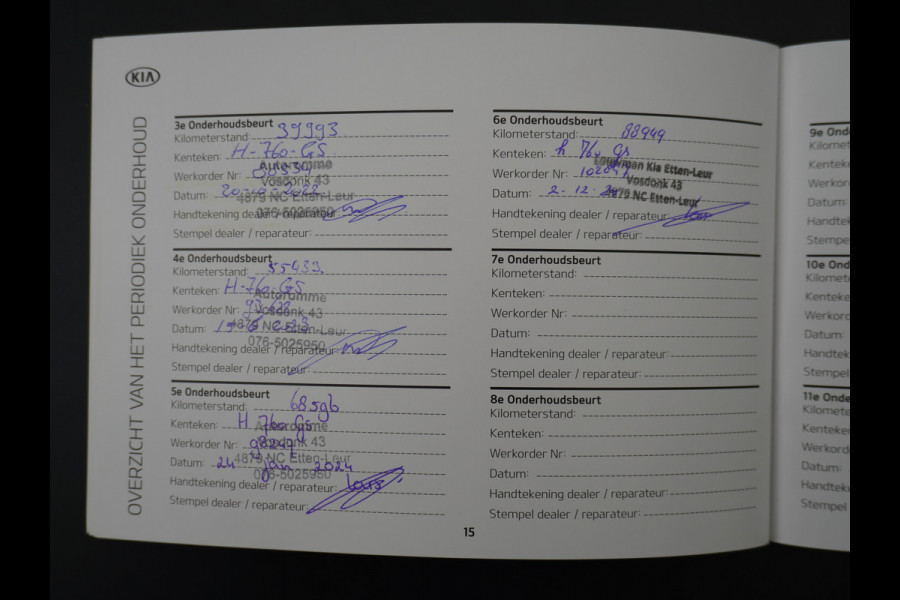 KIA
OVERZICHT VAN HET PERIODIEK ONDERHOUD
3e Onderhoudsbeurt
Kilometerstand: 39993
Kenteken: H-760-GS
Werkorder Nr:
Datum:
Handtekening dealer / reparateur:
Stempel dealer / reparateur:
Autorumme
Vosdonk 43
4879 NC Etten-Leur
076-5025950
4e Onderhoudsbeurt
Kilometerstand: 55433
Kenteken: H-760-GS
Werkorder Nr:
Datum:
Handtekening dealer / reparateur:
Stempel dealer / reparateur:
Autorumme
Vosdonk 43
4879 NC Etten-Leur
076-5025950
5e Onderhoudsbeurt
Kilometerstand:
Kenteken: H 760 GS
Werkorder Nr:
Datum: 24 jan 2024
Handtekening dealer / reparateur:
Stempel dealer / reparateur:
Autorumme
Vosdonk 43
4879 NC Etten-Leur
076-5025950
6e Onderhoudsbeurt
Kilometerstand: 88949
Kenteken: h 760 GS
Werkorder Nr:
Datum: 2-12-
Handtekening dealer / reparateur:
Stempel dealer / reparateur:
Louwman Kia Etten-Leur
Vosdonk 43
4879 NC Etten-Leur
7e Onderhoudsbeurt
Kilometerstand:
Kenteken:
Werkorder Nr:
Datum:
Handtekening dealer / reparateur:
Stempel dealer / reparateur:
8e Onderhoudsbeurt
Kilometerstand:
Kenteken:
Werkorder Nr:
Datum:
Handtekening dealer / reparateur:
Stempel dealer / reparateur:
15
9e Ond
Kilomet
Kenteke
Werkor
Datum:
Handtek
Stempe
10e Ond
Kilomet
Kenteke
Werkorc
Datum:
Handtek
Stempel
11e Onde
Kilomete
Kenteken
Werkord
Datum:
Handtek
Stempel